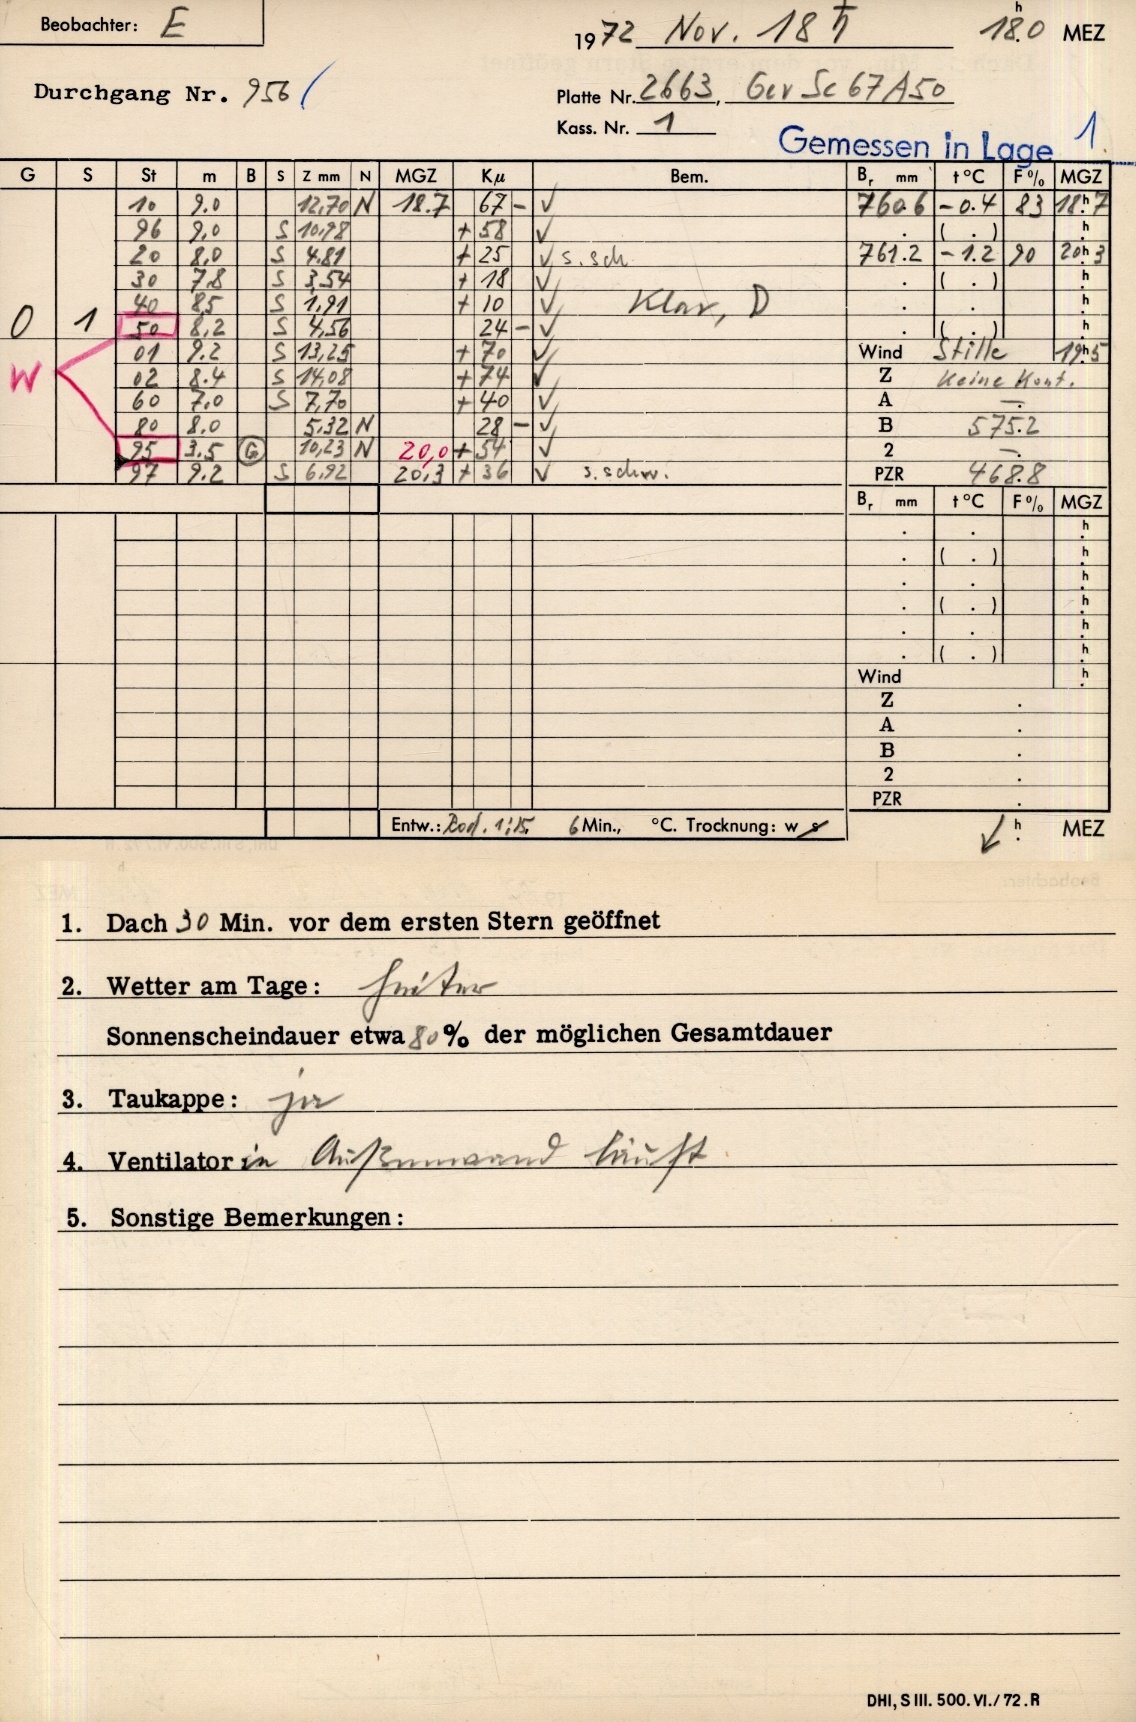 Beobachter: E
1972 Nov. 18 ♄ 18.0 h MEZ
Durchgang Nr. 956
Platte Nr. 2663, Gev Sc 67A50
Kass. Nr. 1
Gemessen in Lage 1.
G S St m B S Z mm N MGZ Kµ Bem. Br mm t °C F % MGZ
10 9.0 12,70 N 18.7 67 - ✓ 760.6 -0.4 83 18h7
96 9,0 S 10,98 + 58 ✓ . ( . ) h
20 8,0 S 4.81 + 25 ✓ s.sch. 761.2 -1.2 90 20h3
30 7.8 S 3,54 + 18 ✓ . ( . ) h
40 8,5 S 1,91 + 10 ✓ Klar, D . . h
0 1 50 8,2 S 4,56 24 - ✓ . ( . ) h
01 9.2 S 13,25 + 70 ✓ Wind Stille 19h5
W 02 8.4 S 14,08 + 74 ✓ Z Keine Kont.
60 7.0 S 7,70 + 40 ✓ A —.
80 8.0 5.32 N 28 - ✓ B 575.2
95 3.5 G 10,23 N 20,0 + 54 ✓ 2 —.
97 9.2 S 6,92 20,3 + 36 ✓ s.schw. PZR 468.8
Br mm t °C F % MGZ
. . h
. ( . ) h
. . h
. ( . ) h
. . h
. ( . ) h
Wind h
Z .
A .
B .
2 .
PZR .
Entw.: Rod. 1:15, 6 Min., °C. Trocknung: w s h MEZ
1. Dach 30 Min. vor dem ersten Stern geöffnet
2. Wetter am Tage: heiter
Sonnenscheindauer etwa 80 % der möglichen Gesamtdauer
3. Taukappe: ja
4. Ventilator in Außenwand läuft
5. Sonstige Bemerkungen:
DHI, S III. 500. VI./72. R